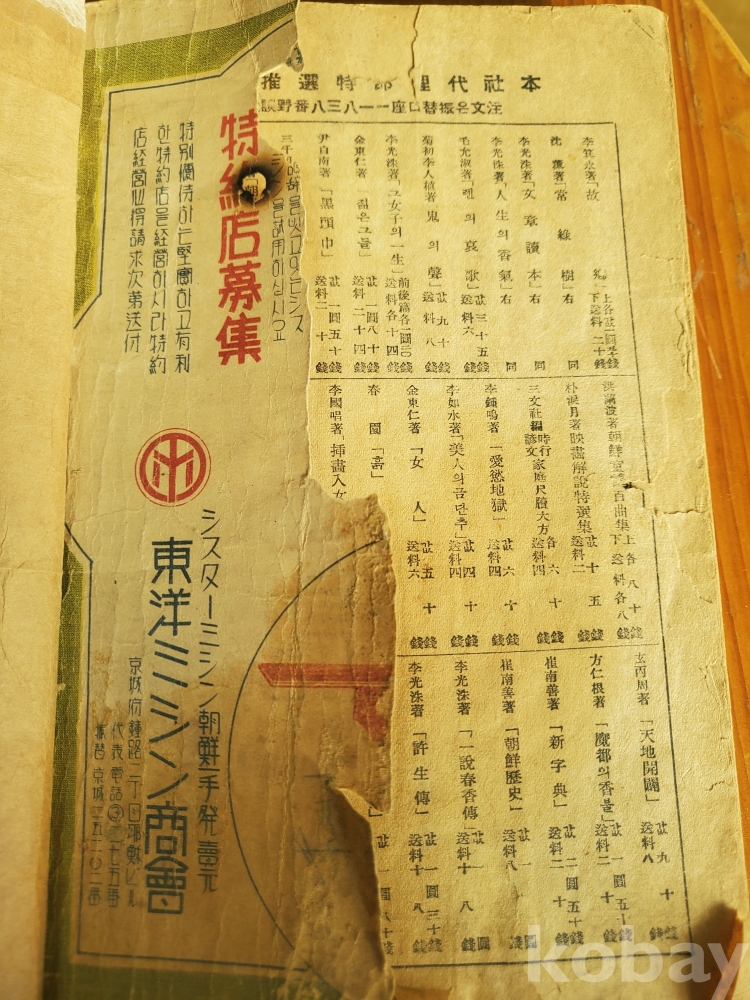 本社代理部特選推
注文은振替口座一一八三八番野談
李箕永著「故 鄕」上下 各값一圓五十錢 送料二十錢
沈 薰著「常綠樹」右 同
李光洙著「文章讀本」右 同
李光洙著「人生의香氣」右 同
毛允淑著「렌의哀歌」값三十五錢 送料六錢
菊初李人稙著「鬼의聲」값九十錢 送料八錢
李光洙著「그女子의一生」前後篇各一圓二〇 送料各十四錢
金東仁著「젊은그들」값一圓八十錢 送料二十四錢
尹白南著「黑頭巾」값一圓五十錢 送料二十錢
朴淚月著「映畵解說特選集」값十五錢 送料二錢
三文社編 時行諺文「家庭尺牘大方」各六十錢 送料四錢
李鍾鳴著「愛慾地獄」값六十錢 送料四錢
李如水著「美人의금단추」값四十錢 送料四錢
金東仁著「女 人」값五十錢 送料六錢
春 園「흙」
李國唱著「揷畵入女
玄丙周著「天地開闢」값九十錢 送料八錢
方仁根著「魔都의香불」값一圓五十錢 送料二
崔南善著「新字典」값二圓五十錢 送料二十錢
崔南善著「朝鮮歷史」값一圓 送料八錢
李光洙著「一說春香傳」값一圓 送料十八錢
李光洙著「許生傳」값一圓三十錢 送料十八錢
特約店募集
을試用하십시요
特別優待하는堅實하고有利
한特約店을經營하시라特約
店經營心得請求次第送付
シスターミシン朝鮮一手發賣元
東洋ミシン商會
京城府鍾路二丁目
代表電話
振替京城
kobay